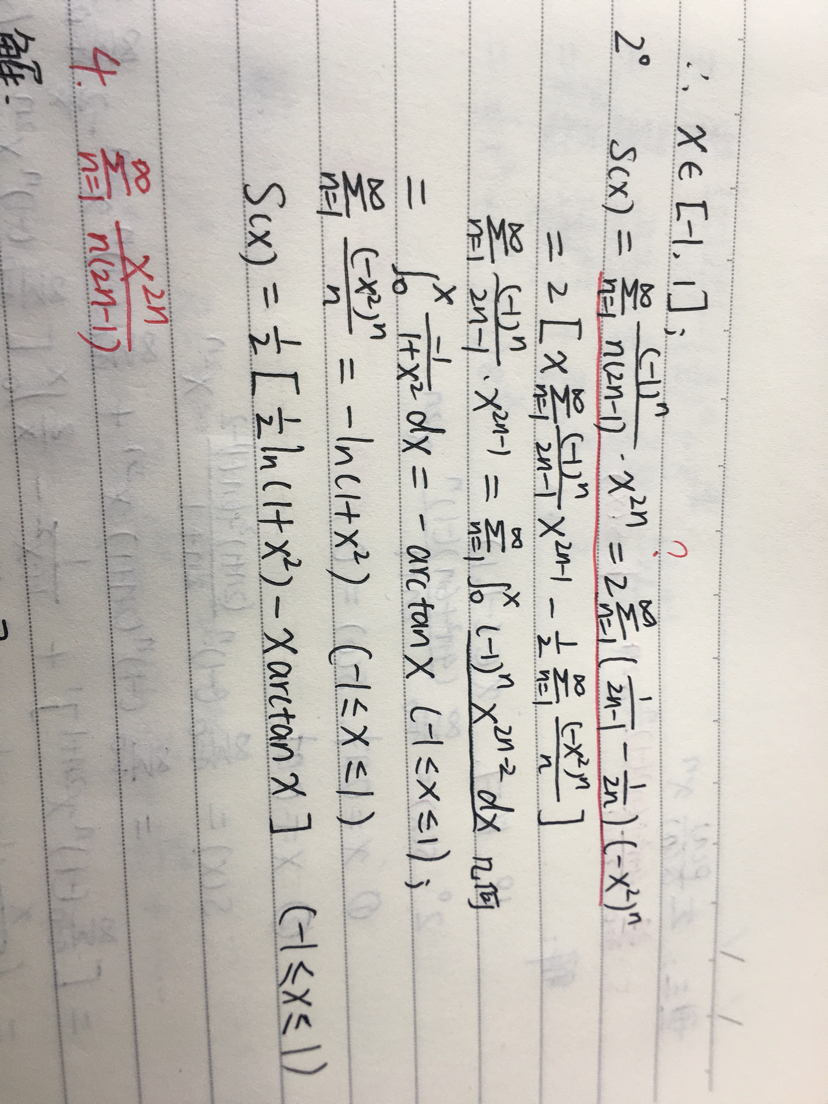 ∴ x∈[-1,1];
?
2° S(x) = ∑_{n=1}^{∞} (-1)^n/(n(2n-1)) · x^{2n} = 2∑_{n=1}^{∞} (1/(2n-1) - 1/(2n)) (-x²)^n
= 2[x∑_{n=1}^{∞} (-1)^n/(2n-1) x^{2n-1} - 1/2 ∑_{n=1}^{∞} (-x²)^n/n]
∑_{n=1}^{∞} (-1)^n/(2n-1) · x^{2n-1} = ∑_{n=1}^{∞} ∫_0^x (-1)^n x^{2n-2} dx
= ∫_0^x -1/(1+x²) dx = -arctan x (-1≤x≤1);
∑_{n=1}^{∞} (-x²)^n/n = -ln(1+x²) (-1≤x≤1)
S(x) = 1/2 [1/2 ln(1+x²) - x arctan x] (-1≤x≤1)
4. ∑_{n=1}^{∞} x^{2n}/(n(2n-1))
解: